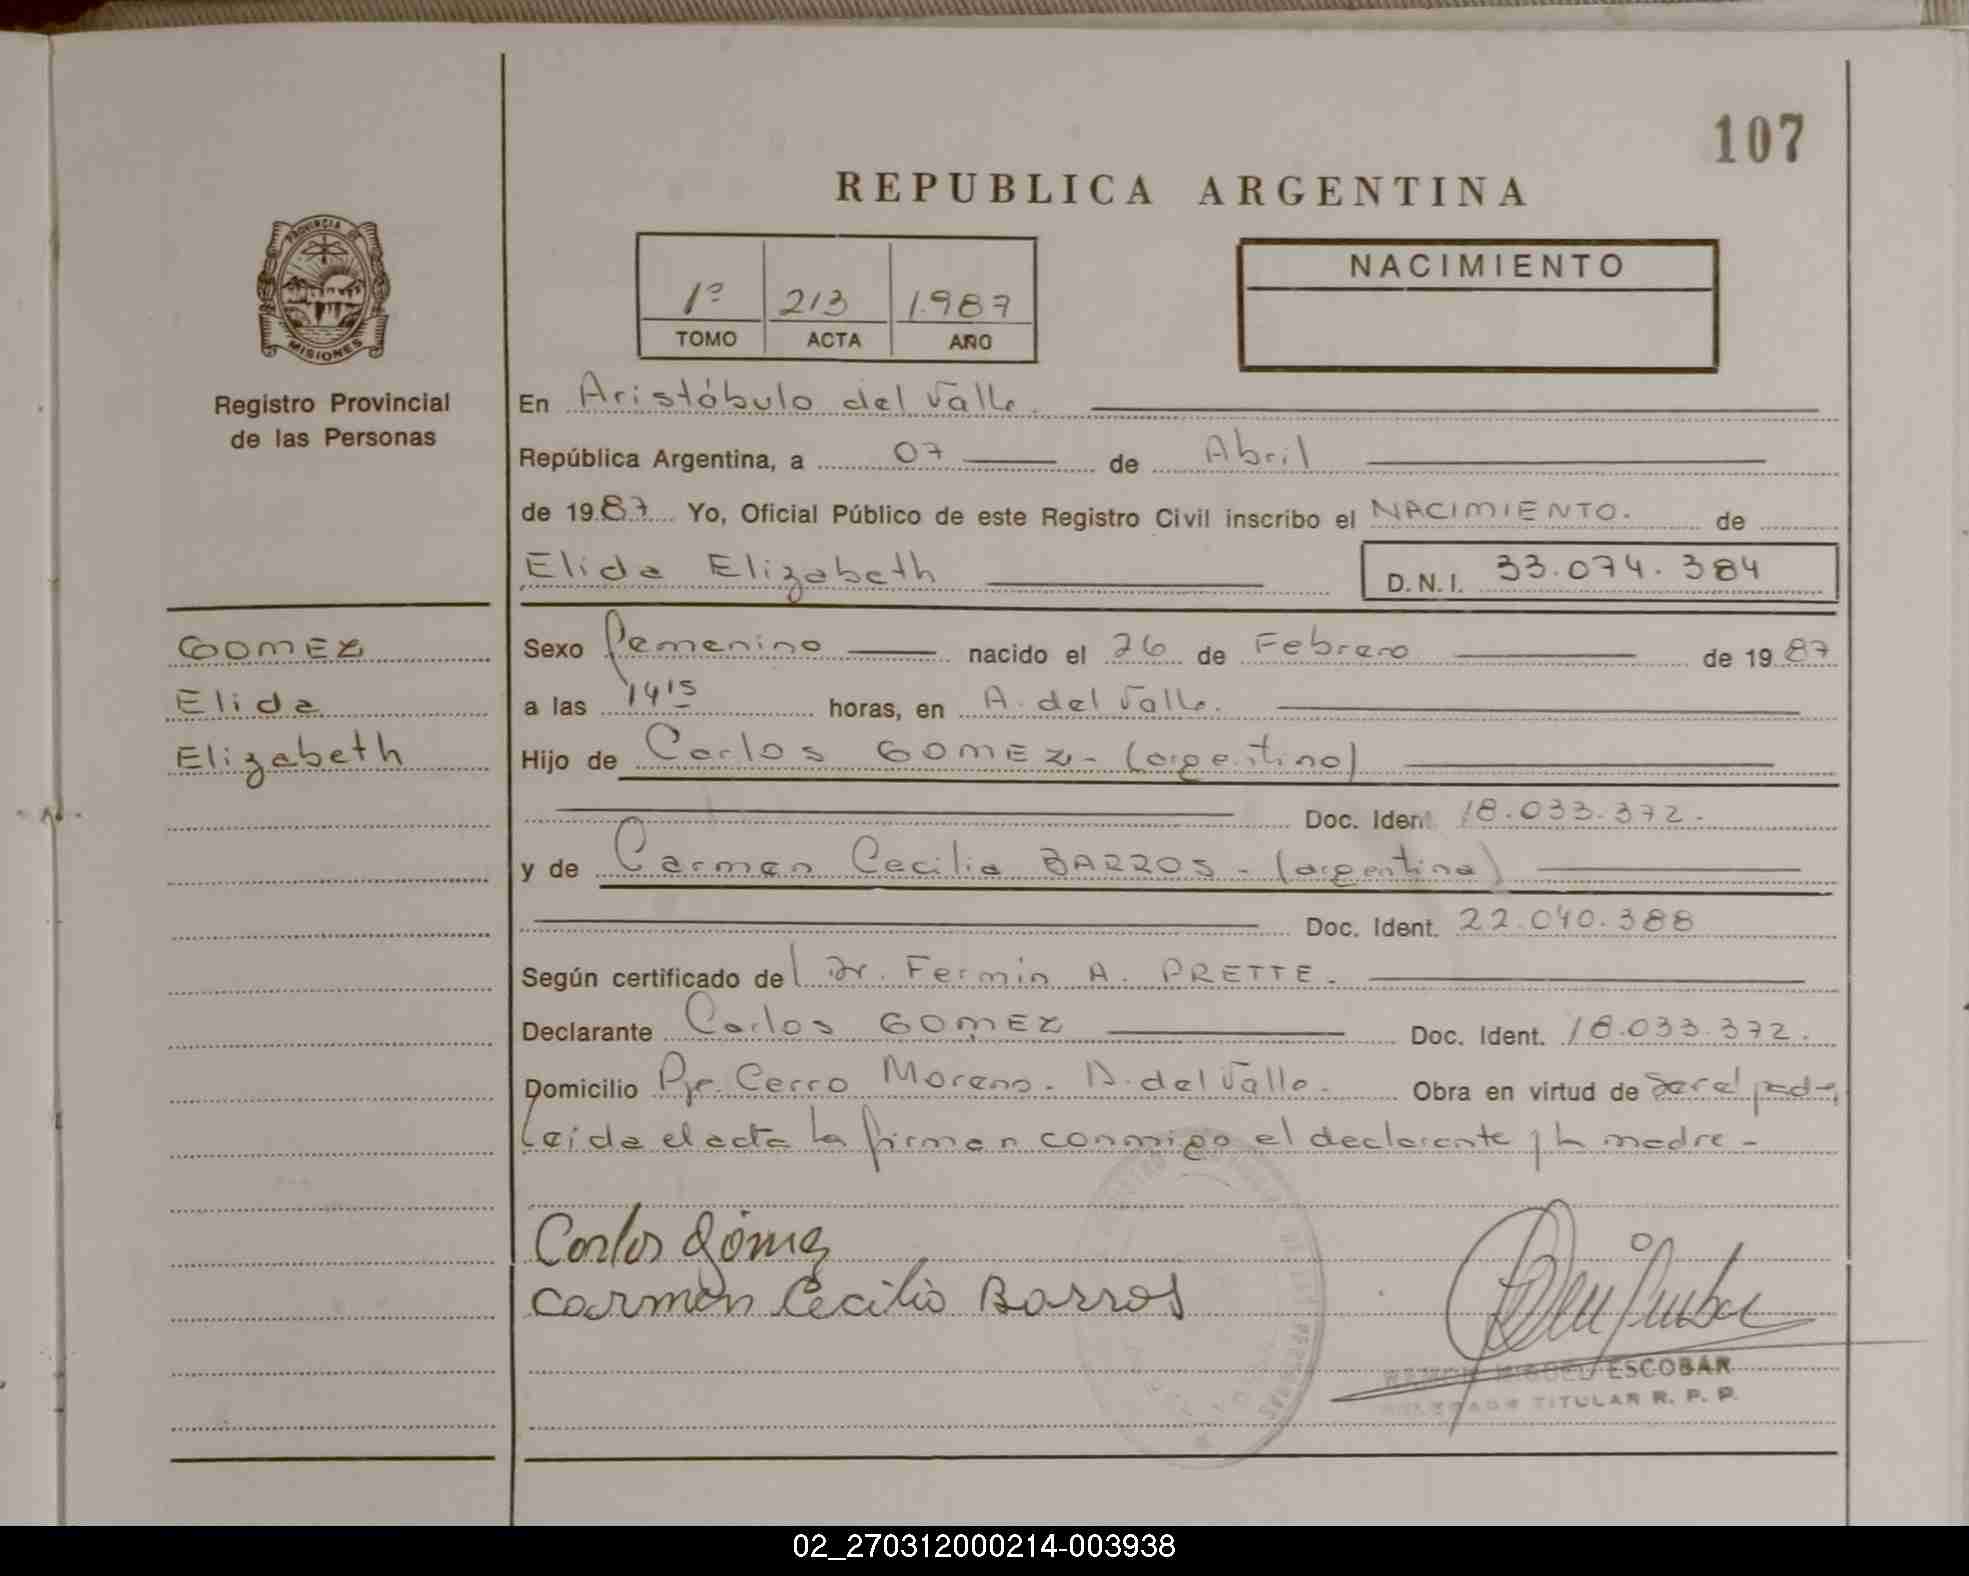 107
REPUBLICA ARGENTINA
PROVINCIA DE
MISIONES
Registro Provincial
de las Personas
1º 213 1.987
TOMO ACTA AÑO
NACIMIENTO
En Aristóbulo del Valle.
República Argentina, a 07 de Abril
de 1987 Yo, Oficial Público de este Registro Civil inscribo el NACIMIENTO. de
Elida Elizabeth D.N.I. 33.074.384
GOMEZ
Elida
Elizabeth
Sexo Femenino nacido el 26 de Febrero de 1987
a las 14 15 horas, en A. del Valle.
Hijo de Carlos GOMEZ - (argentino)
Doc. Ident. 18.033.372.
y de Carmen Cecilia BARROS - (argentina)
Doc. Ident. 22.040.388
Según certificado del Dr. Fermin A. PRETTE.
Declarante Carlos GOMEZ Doc. Ident. 18.033.372.
Domicilio Pje. Cerro Moreno. A. del Valle. Obra en virtud de ser el padre
Leida el acta la firman conmigo el declarante y la madre -
Carlos Gómez
Carmen Cecilia Barros
RAMON MIGUEL ESCOBAR
DELEGADO TITULAR R. P. P.
02_270312000214-003938